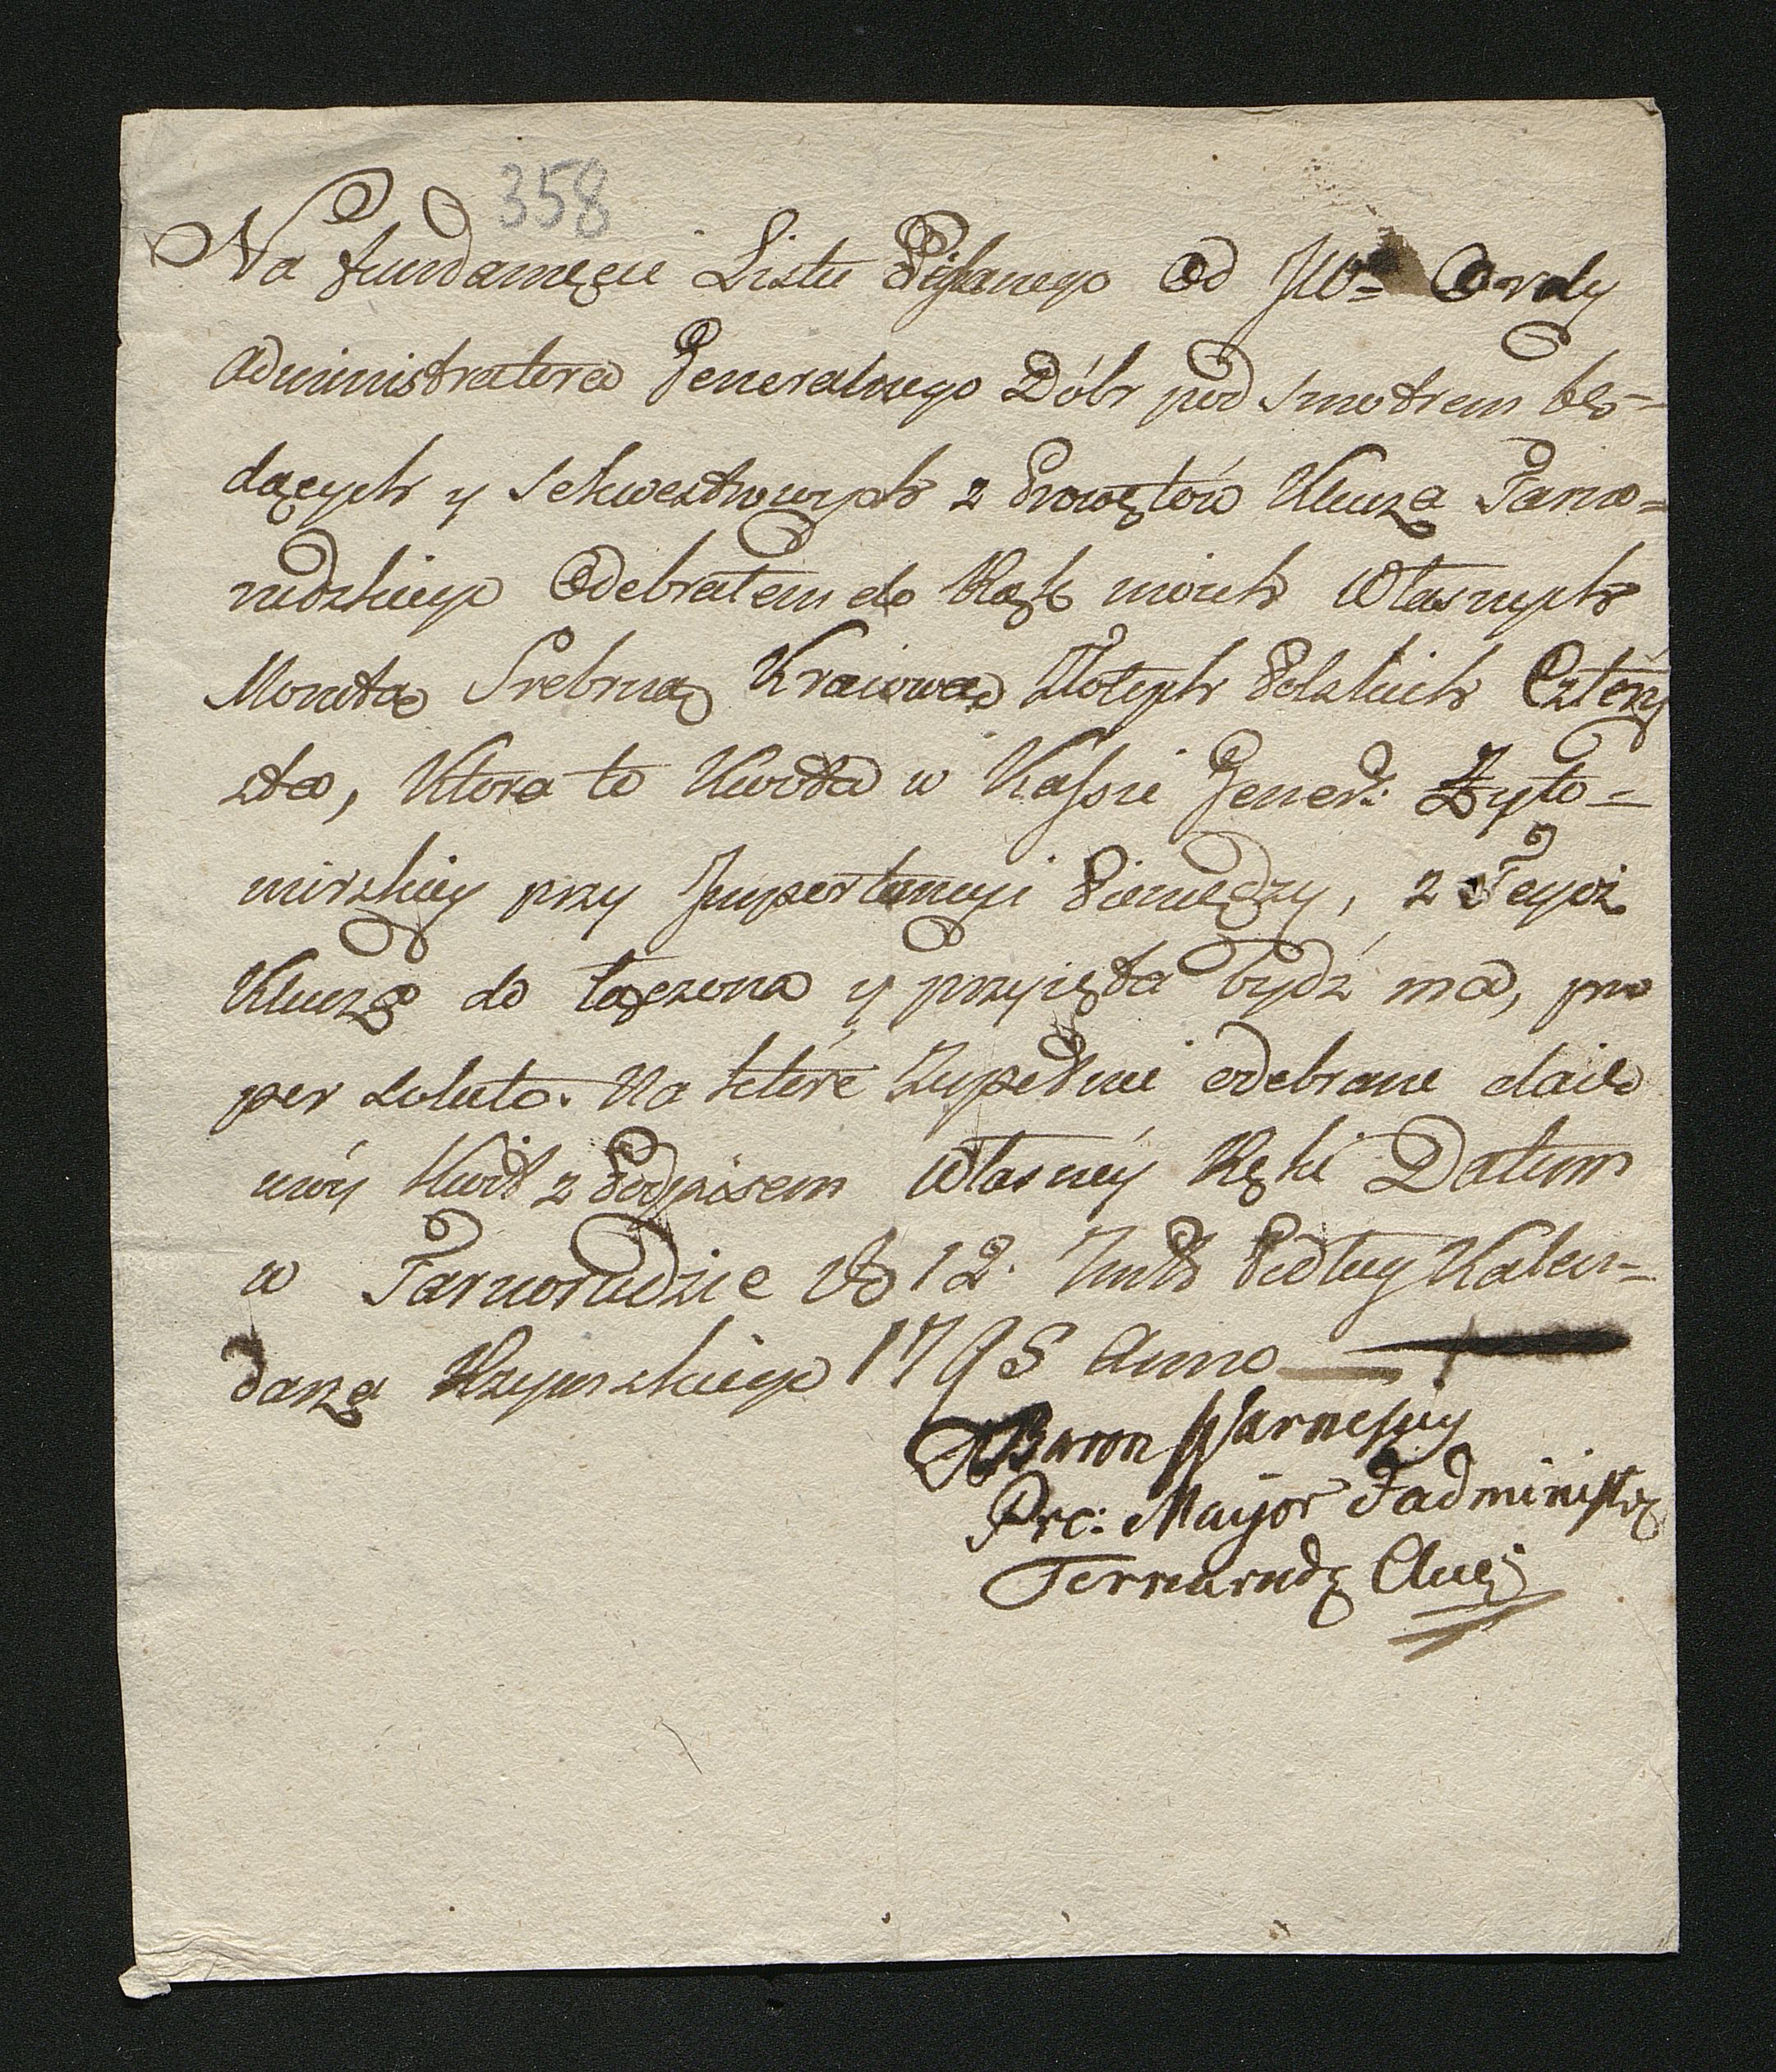 358
Na fundamęcie Listu Pisanego Od JW= Ordy
Administratora Generalnego Dóbr pod smotrem bę-
dących y Sekwestrowych z Prowętów Klucza Tarno=
rudzkiego Odebrałem do Rąk moich Własnych
Monetą Srebrną Kraiową Złotych Polskich Cztery
sta, Która to Kwota w Kassie Gener: Żyto=
mirskiey przy Importancyi Pieniędzy, z Tegoż
Klucza do łączona y przyięta bydź ma, pro
per soluto. Na które Zupełnie odebrane daię
móy Kwit z Podpisem Własnéy Ręki Datum
w Tarnorudzie D 12. Podług Kalen=
darza Rzymskiego 1795 Anno
Baron
Mayor J administr